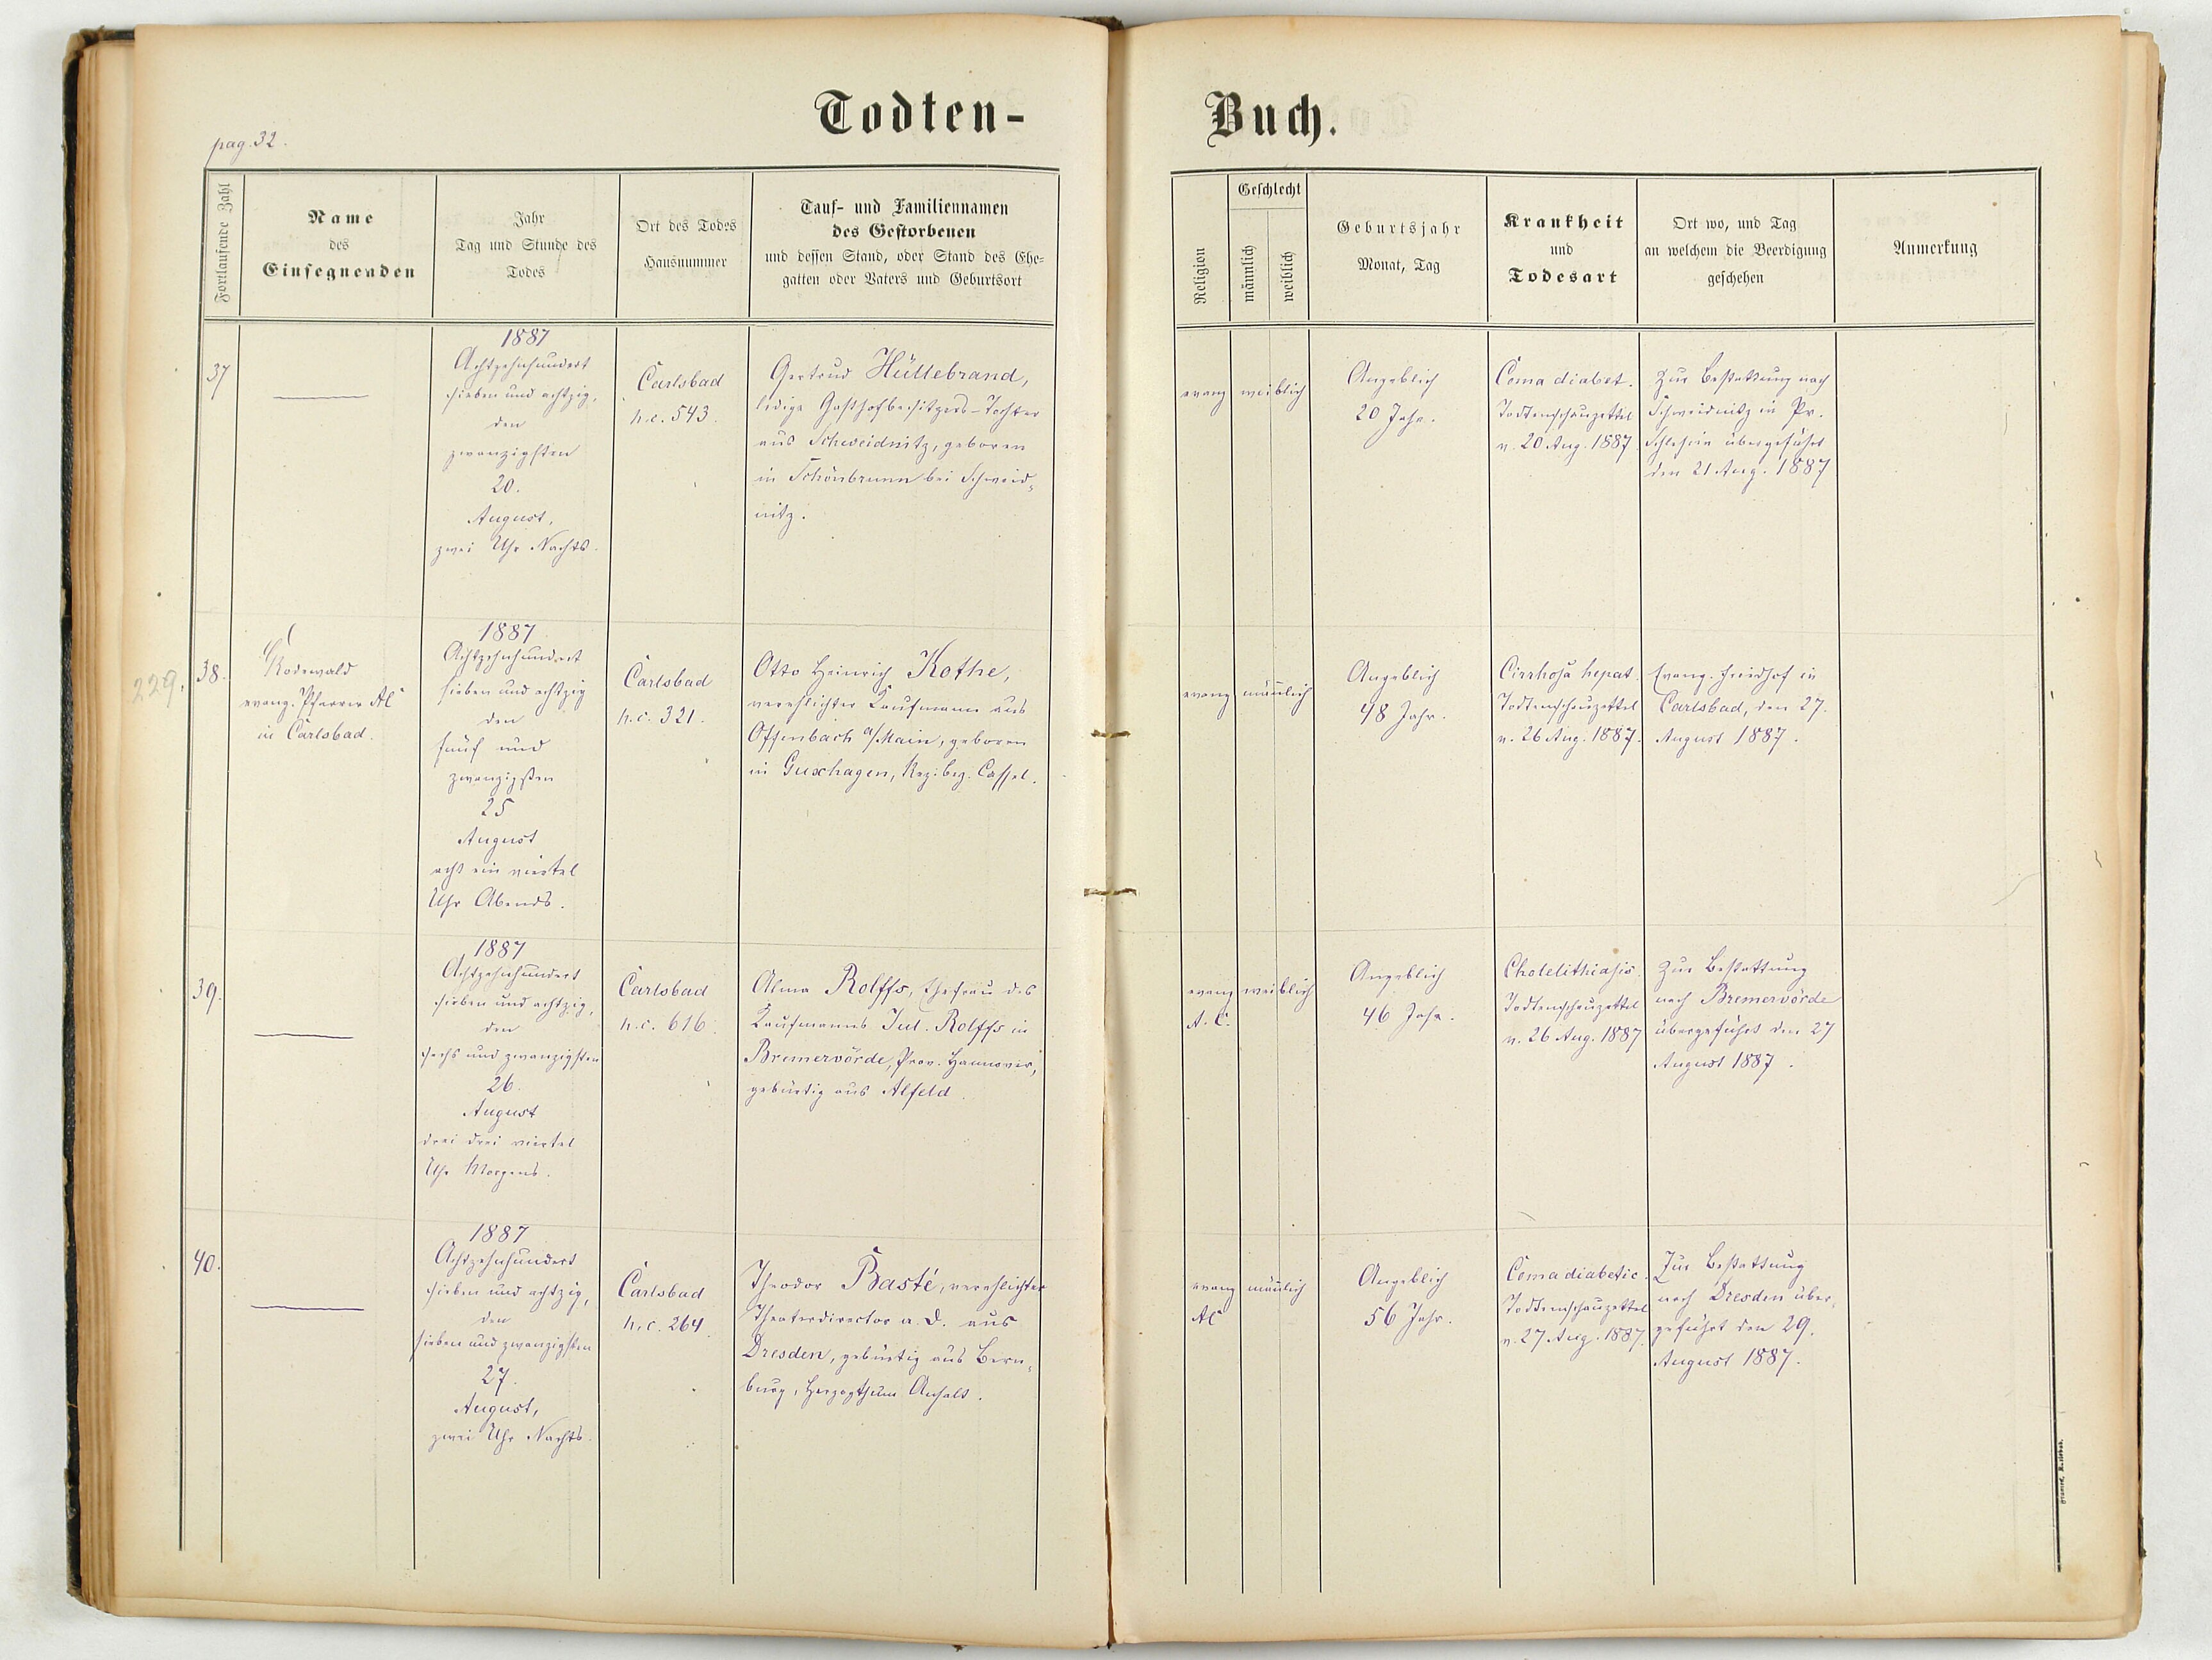 pag. 32.
Todten-
Buch.
Fortlaufende Zahl
Name
des
Einsegnenden
Jahr
Tag und Stunde des
Todes
Ort des Todes
Hausnummer
Tauf- und Familiennamen
des Gestorbenen
und dessen Stand, oder Stand des Ehe-
gatten oder Vaters und Geburtsort
Religion
Geschlecht
männlich
weiblich
Geburtsjahr
Monat, Tag
Krankheit
und
Todesart
Ort wo, und Tag
an welchem die Beerdigung
geschehen
Anmerkung
37
1887
Achtzehnhundert
sieben und achtzig,
den
zwanzigsten
20.
August,
zwei Uhr Nachts.
Carlsbad
h.c. 543.
Gertrud Hüllebrand,
ledige Gasthofbesitzers-Tochter
aus Schweidnitz, geboren
in Schönbrunn bei Schweid-
nitz.
evang
weiblich
Angeblich
20 Jahr.
Coma diabet.
Todtenschauzettel
v. 20 Aug. 1887
Zur Bestattung nach
Schweidnitz in Pr.
Schlesien übergeführt
den 21 Aug. 1887
229.
38.
Rodewald
evang. Pfarrer AC
in Carlsbad.
1887
Achtzehnhundert
sieben und achtzig
den
fünf und
zwanzigsten
25
August
acht ein viertel
Uhr Abends.
Carlsbad
h.c. 321.
Otto Heinrich Kothe,
verehlichter Kaufmann aus
Offenbach a/Main, geboren
in Guxhagen, Reg. bez. Cassel.
evang
männlich
Angeblich
48 Jahr.
Cirrhosa hepat.
Todtenschauzettel
v. 26 Aug. 1887.
Evang. Friedhof in
Carlsbad, den 27.
August 1887.
39.
1887
Achtzehnhundert
sieben und achtzig,
den
sechs und zwanzigsten
26.
August
drei drei viertel
Uhr Morgens.
Carlsbad
h.c. 616.
Alma Rolffs, Ehefrau des
Kaufmanns Jul. Rolffs in
Bremervörde, Prov. Hannover,
gebürtig aus Alfeld.
evang
A. C.
weiblich
Angeblich
46 Jahr.
Cholelithiasis.
Todtenschauzettel
v. 26 Aug. 1887
Zur Bestattung
nach Bremervörde
übergeführt den 27
August 1887.
40.
1887
Achtzehnhundert
sieben und achtzig,
den
sieben und zwanzigsten
27.
August,
zwei Uhr Nachts.
Carlsbad
h.c. 264.
Theodor Basté, verehlichter
Theaterdirector a. D. aus
Dresden, gebürtig aus Bern-
burg, Herzogthum Anhalt.
evang
AC
männlich
Angeblich
56 Jahr.
Coma diabetic.
Todtenschauzettel
v. 27 Aug. 1887.
Zur Bestattung
nach Dresden über-
geführt den 29.
August 1887.